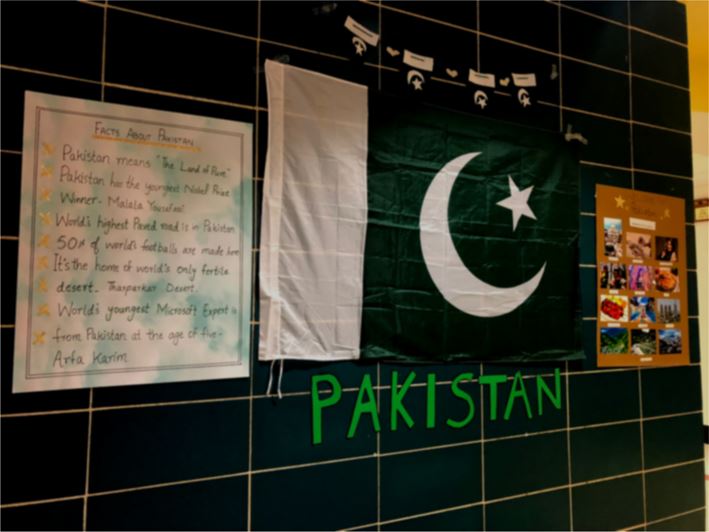 FACTS ABOUT PAKISTAN
Pakistan means "The Land of Pure"
Pakistan has the youngest Nobel Prize
Winner- Malala Yousefzai
World's highest Paved road is in Pakistan
50% of world's footballs are made here
It's the home of world's only fertile
desert. Tharparkar Desert.
World's youngest Microsoft Expert is
from Pakistan at the age of five-
Arfa Karim
PAKISTAN